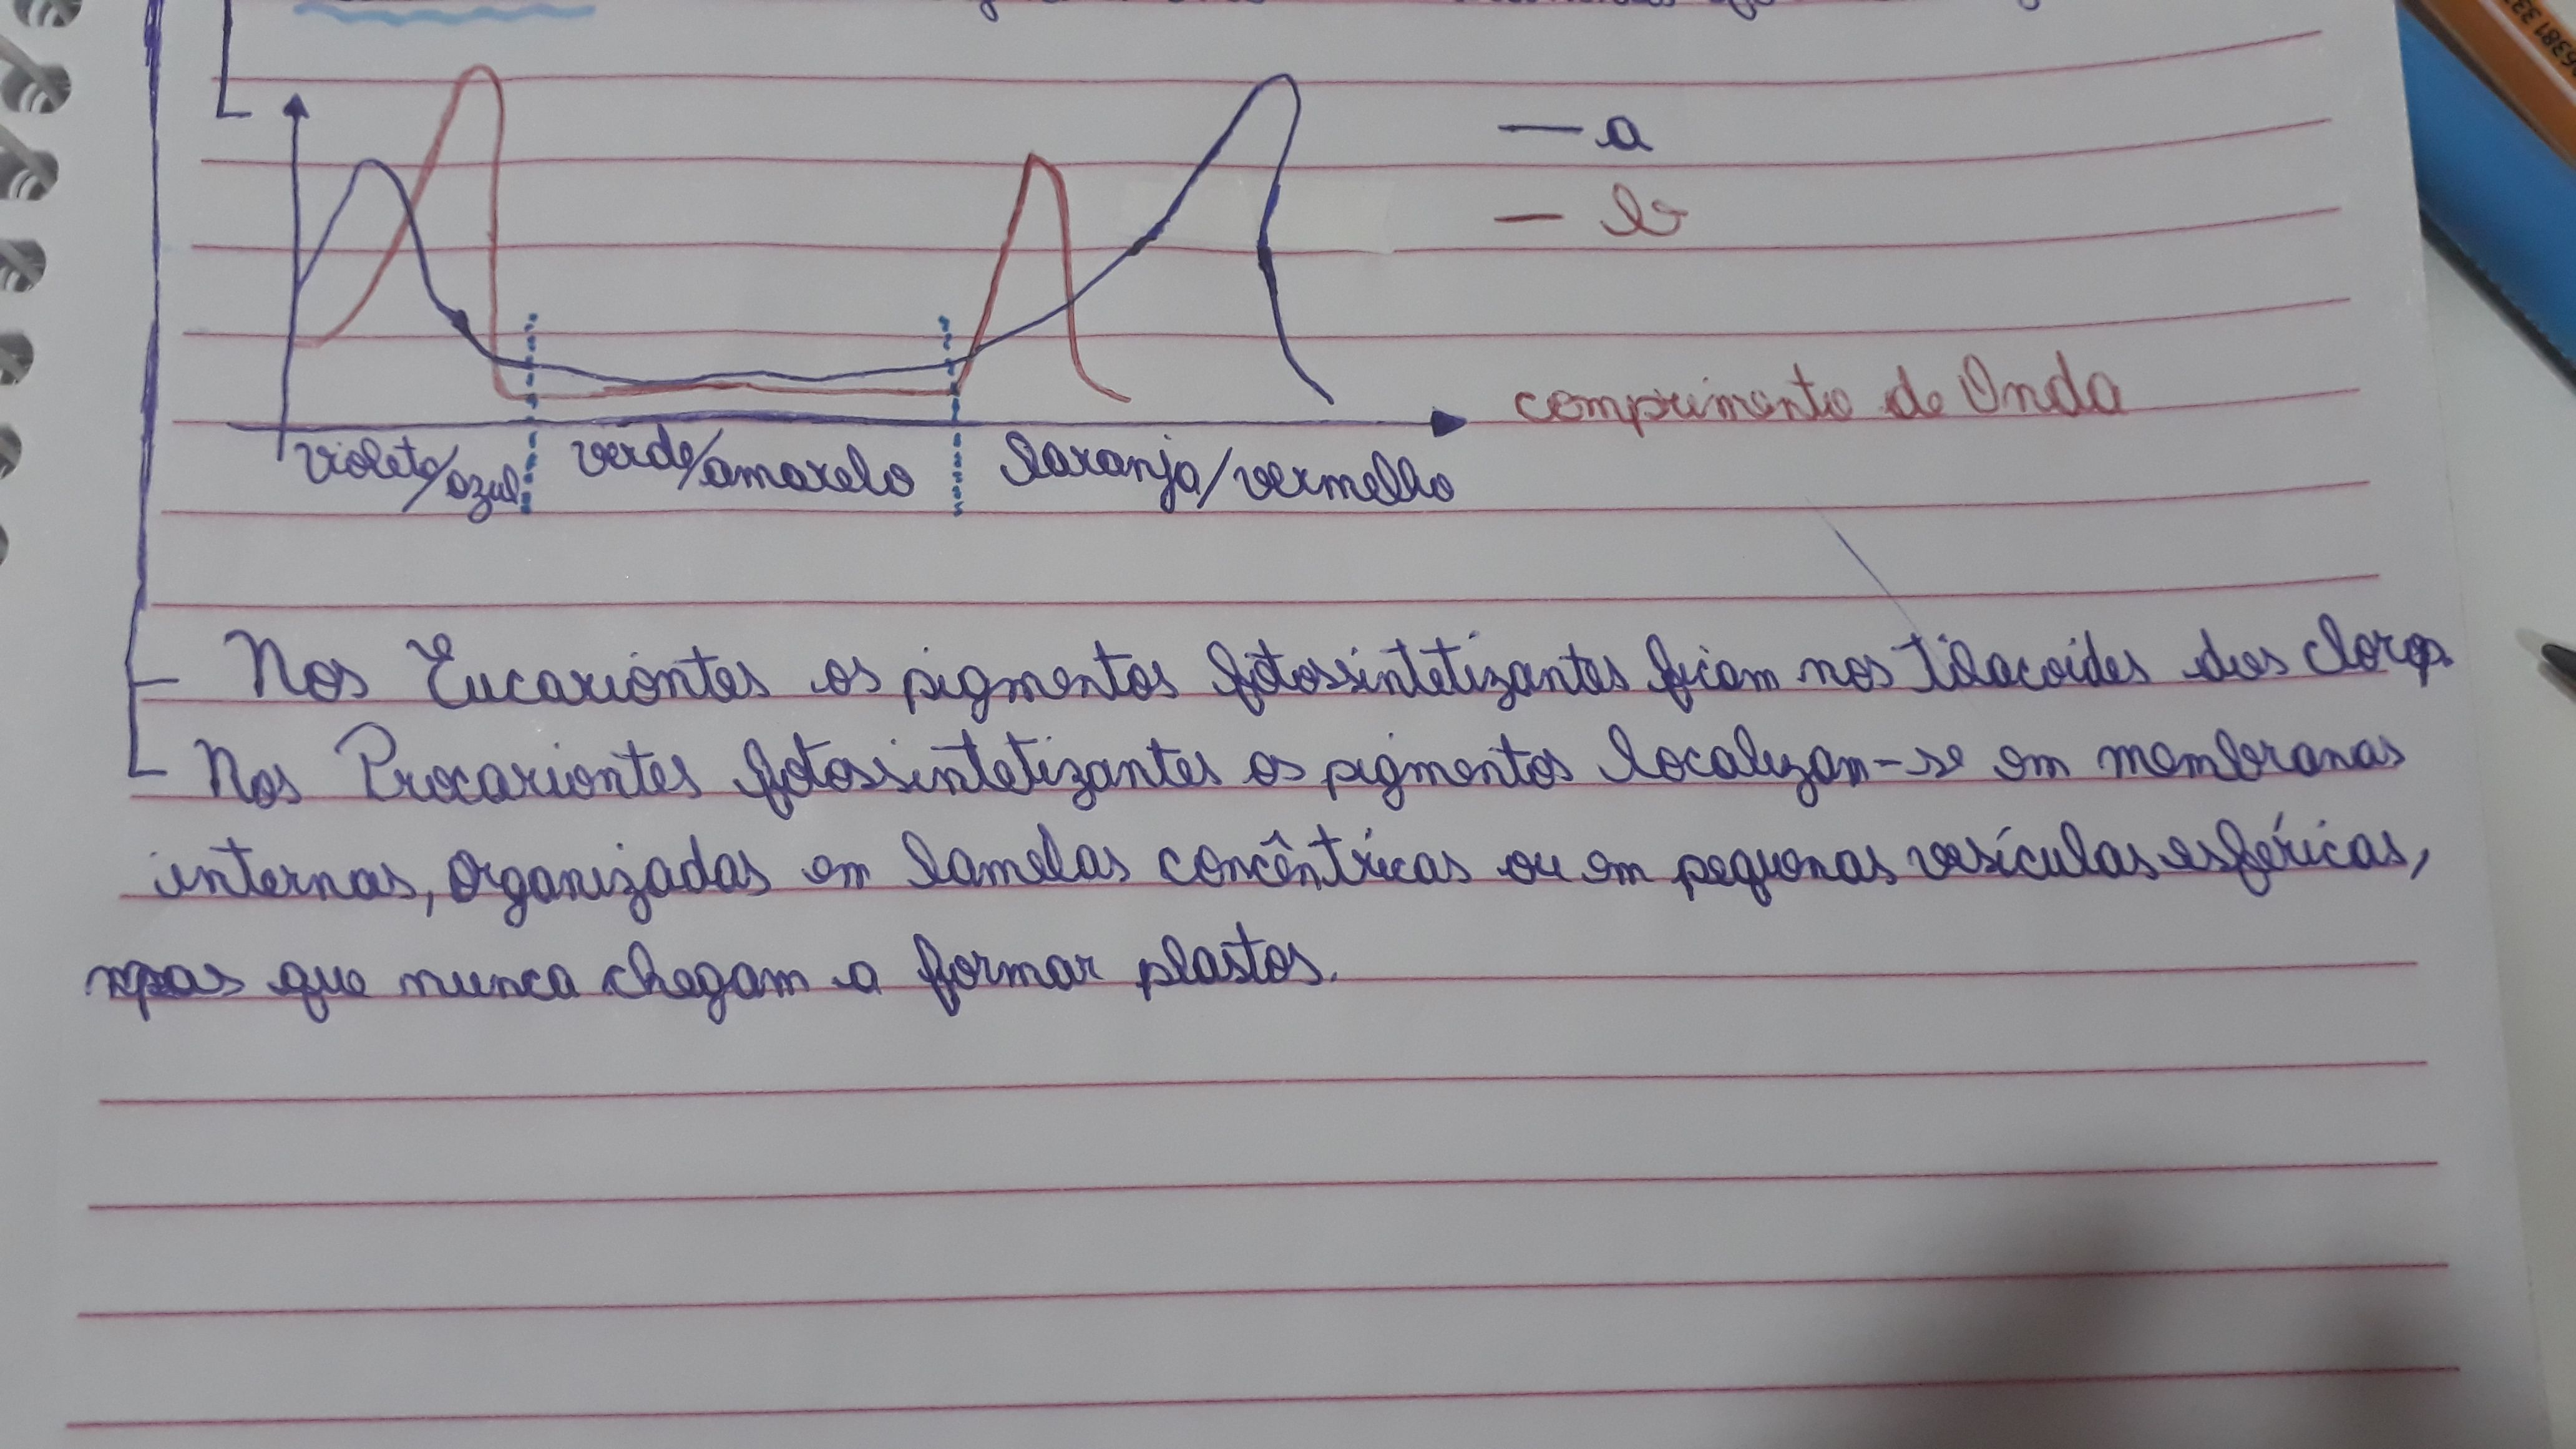 a
b
comprimento de Onda
violeta/azul verde/amarelo laranja/vermelho
Nos Eucariontes os pigmentos fotossintetizantes ficam nos tilacoides dos clorop.
Nos Procariontes fotossintetizantes os pigmentos localizam-se em membranas
internas, organizadas em lamelas concêntricas ou em pequenas vesículas esféricas,
mas que nunca chegam a formar plastos.